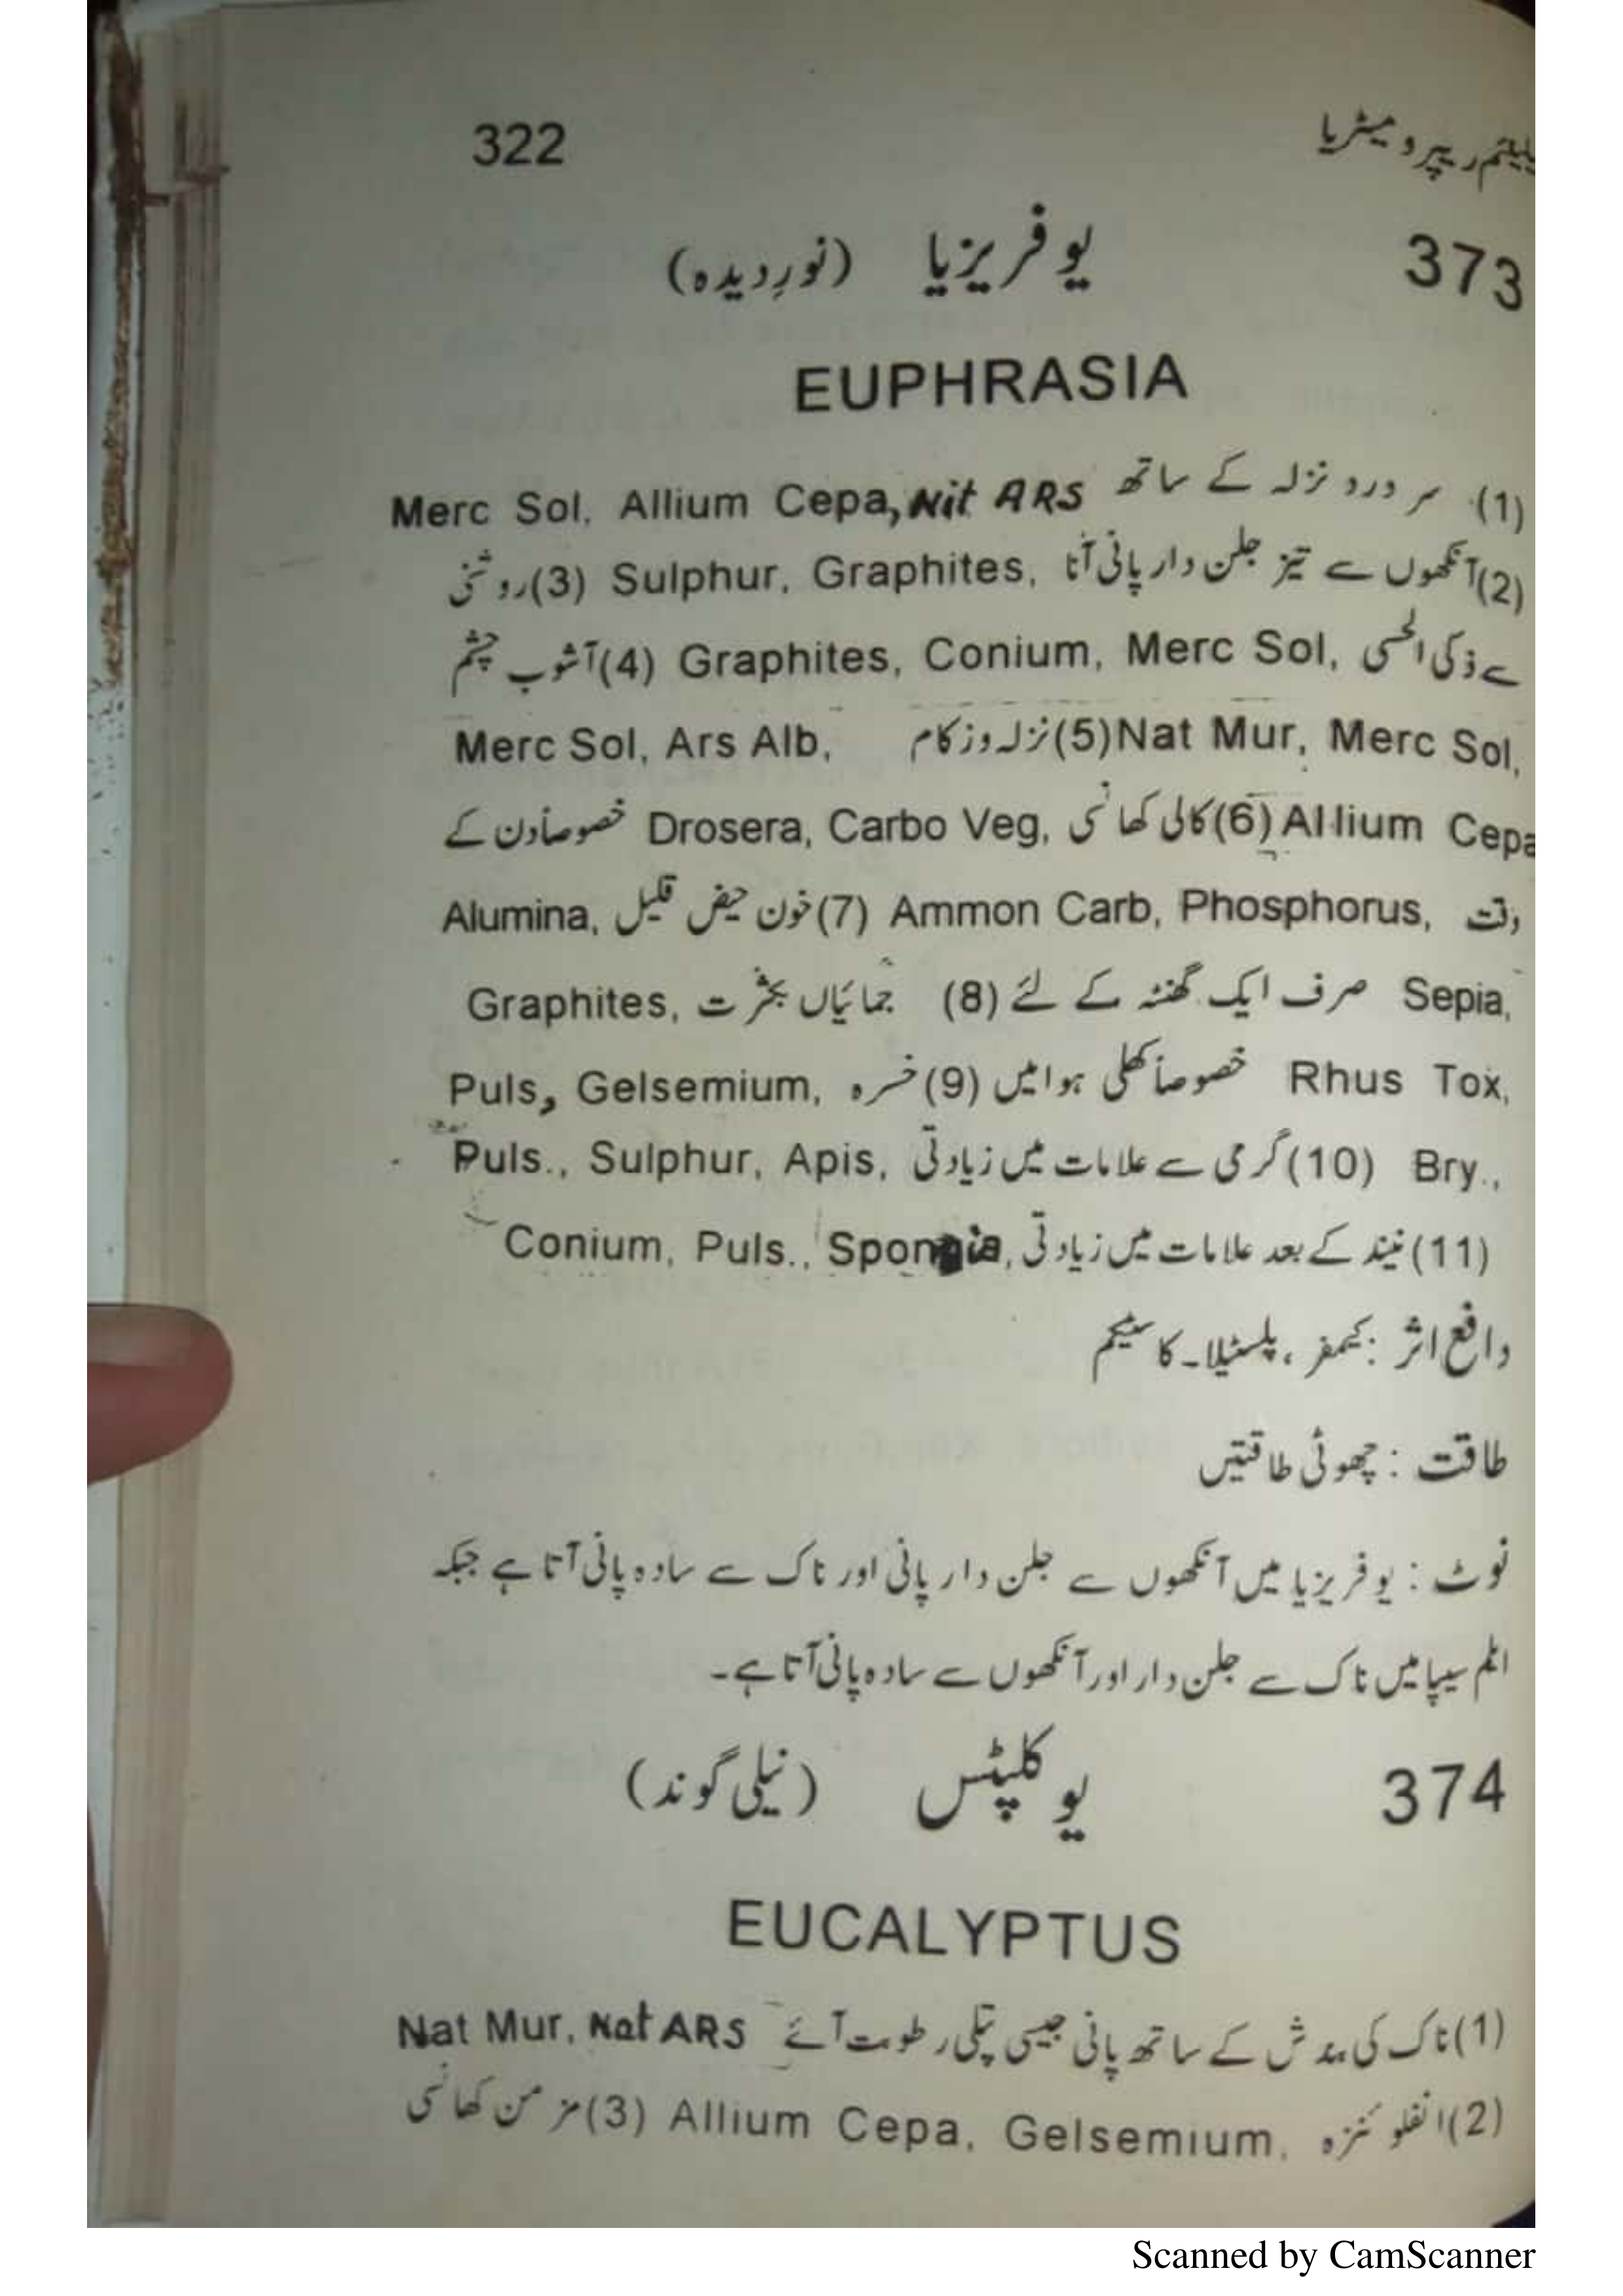 322
373 یوفریزیا (نورِدیدہ)
EUPHRASIA
(1) سر درد نزلہ کے ساتھ Merc Sol, Allium Cepa, Nit ARS
(2) آنکھوں سے تیز جلن دار پانی آنا Sulphur, Graphites, (3) روشنی
سے ذکی الحسی Graphites, Conium, Merc Sol, (4) آشوب چشم
Nat Mur, Merc Sol, (5) نزلہ وزکام Merc Sol, Ars Alb,
Allium Cepa (6) کالی کھانسی Drosera, Carbo Veg, خصوصاً دن کے
وقت Ammon Carb, Phosphorus, (7) خون حیض قلیل Alumina,
Sepia, صرف ایک گھنٹہ کے لئے (8) جمائیاں بکثرت Graphites,
Rhus Tox, خصوصاً کھلی ہوا میں (9) خسرہ Puls, Gelsemium,
Bry., (10) گرمی سے علامات میں زیادتی Puls., Sulphur, Apis,
(11) نیند کے بعد علامات میں زیادتی Conium, Puls., Spongia,
دافع اثر : کیمفر ، پلسٹیلا۔ کاسٹیکم
طاقت : چھوٹی طاقتیں
نوٹ : یوفریزیا میں آنکھوں سے جلن دار پانی اور ناک سے سادہ پانی آتا ہے جبکہ
ایلم سیپا میں ناک سے جلن دار اور آنکھوں سے سادہ پانی آتا ہے۔
374 یوکلپٹس (نیلی گوند)
EUCALYPTUS
(1) ناک کی بندش کے ساتھ پانی جیسی پتلی رطوبت آئے Nat Mur, Nat ARS
(2) انفلوئنزہ Allium Cepa, Gelsemium, (3) مزمن کھانسی
Scanned by CamScanner